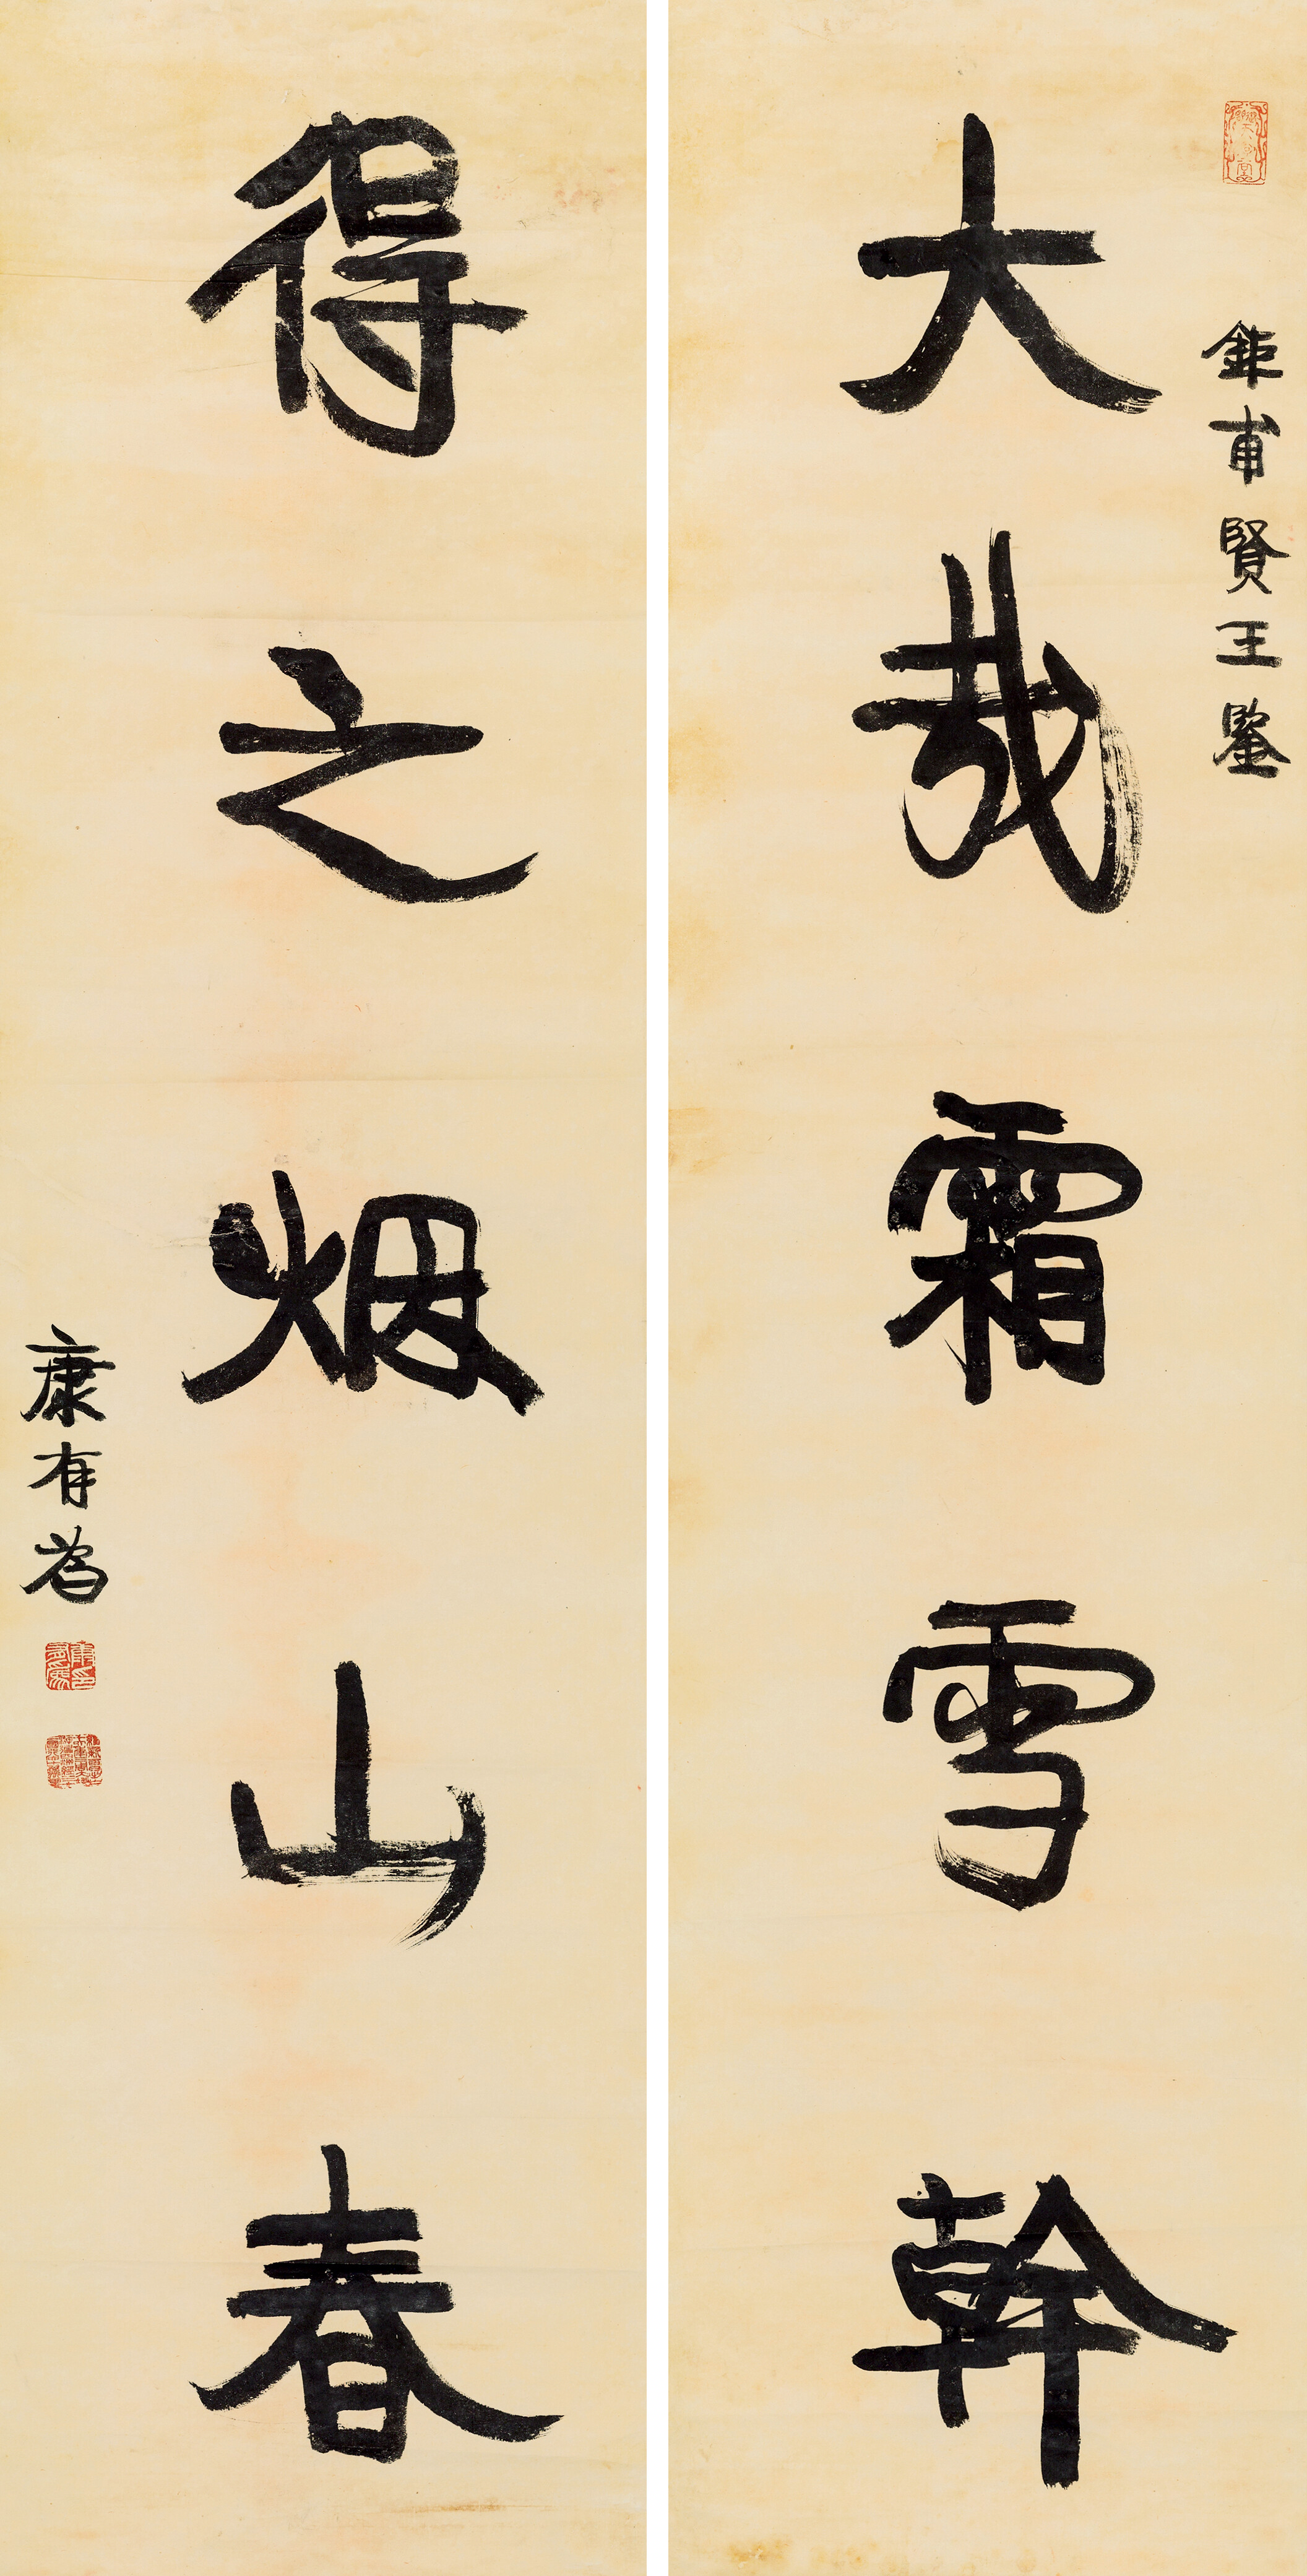 鉅甫賢王鑒
大哉霜雪幹
得之烟山春
康有為